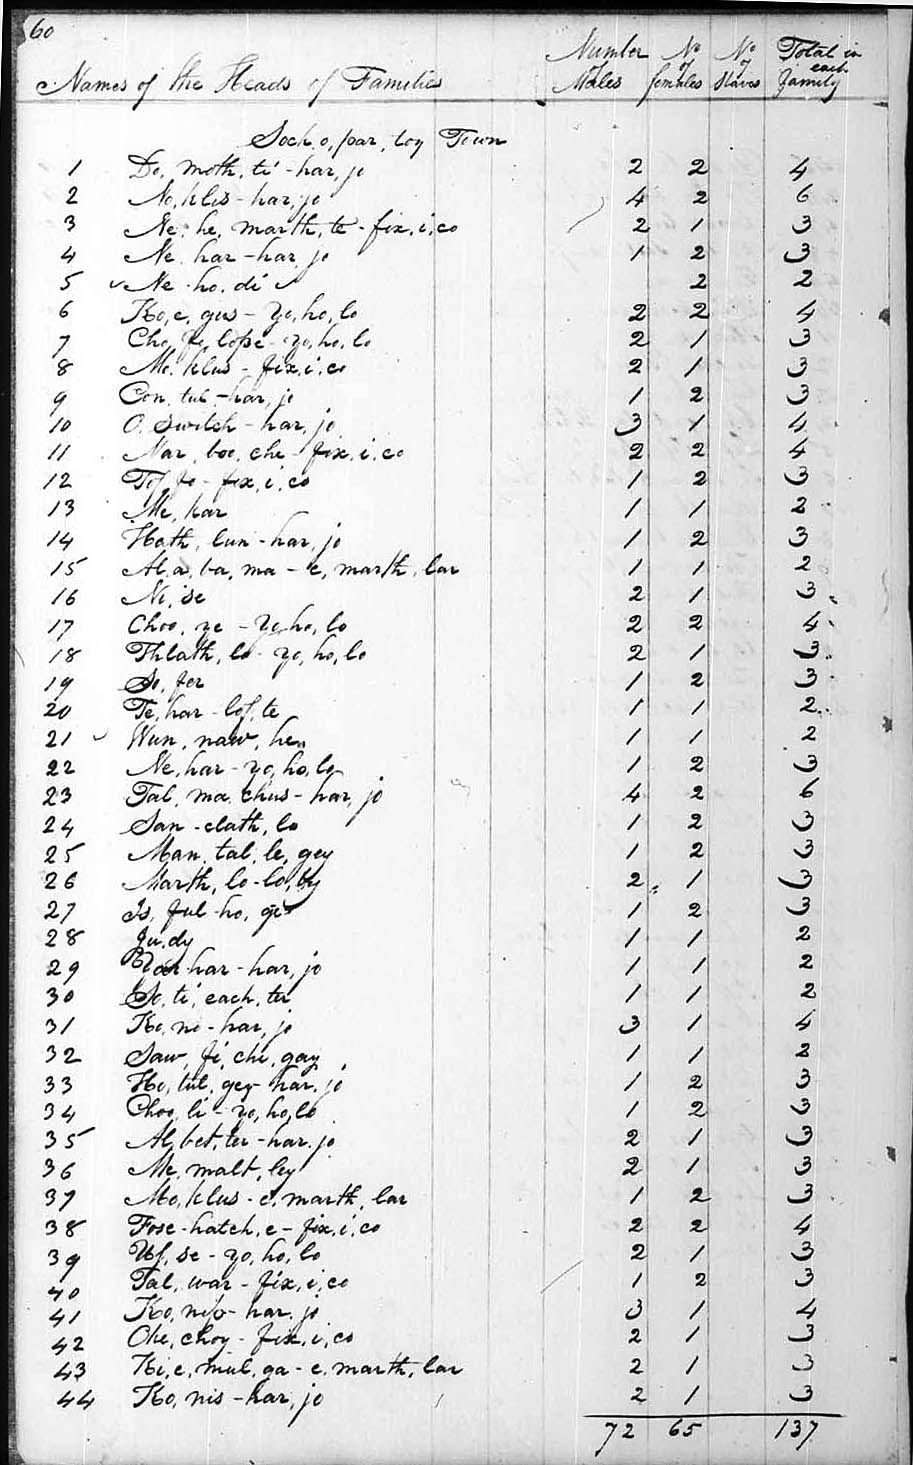 60
Names of the Heads of Families Number of Males No of females No of Slaves Total in each family
Sock,o,par,toy Town
1 Do,moth,ti-har,jo 2 2 4
2 No,klis-har,jo 4 2 6
3 Ne,he,marth,te-fix,i,co 2 1 3
4 Ne,har-har,jo 1 2 3
5 Ne-ho,di 2 2
6 Ko,e,gus-Yo,ho,lo 2 2 4
7 Cho,fo,lope-yo,ho,lo 2 1 3
8 Mo,klus-fix,i,co 2 1 3
9 Con,tul-har,jo 1 2 3
10 O,switch-har,jo 3 1 4
11 Nar,boo,che-fix,i,co 2 2 4
12 fix,i,co 1 2 3
13 Me,kar 1 1 2
14 Hoth,lun-har,jo 1 2 3
15 Al,a,ba,ma-e,marth,lar 1 1 2
16 Ni,se 2 1 3
17 Choo,ye-Yo,ho,lo 2 2 4
18 Thlath,lo-yo,ho,lo 2 1 3
19 So,fer 1 2 3
20 Te,har-lof,te 1 1 2
21 Wun,naw,he 1 1 2
22 Ne,har-yo,ho,lo 1 2 3
23 Tal,ma,chus-har,jo 4 2 6
24 San-clath,lo 1 2 3
25 Man,tal,le,gey 1 2 3
26 Marth,lo-lo,by 2 1 3
27 Is,ful-ho,ge 1 2 3
28 Ju,dy 1 1 2
29 har-har,jo 1 1 2
30 So,ti,each,ter 1 1 2
31 Ko,no-har,jo 3 1 4
32 Saw,fi,chi,gay 1 1 2
33 Ho,tul,gey-har,jo 1 2 3
34 Choo,li-yo,ho,lo 1 2 3
35 Al,bet,ter-har,jo 2 1 3
36 Me,malt,ley 2 1 3
37 Mo,klus-e,marth,lar 1 2 3
38 Fose-hatch,e-fix,i,co 2 2 4
39 Uf,se-yo,ho,lo 2 1 3
40 Tal,war-fix,i,co 1 2 3
41 Ko,nip-har,jo 3 1 4
42 Oke,choy-fix,i,co 2 1 3
43 Ki,e,mul,ga-e,marth,lar 2 1 3
44 Ko,nis-har,jo 2 1 3
72 65 137